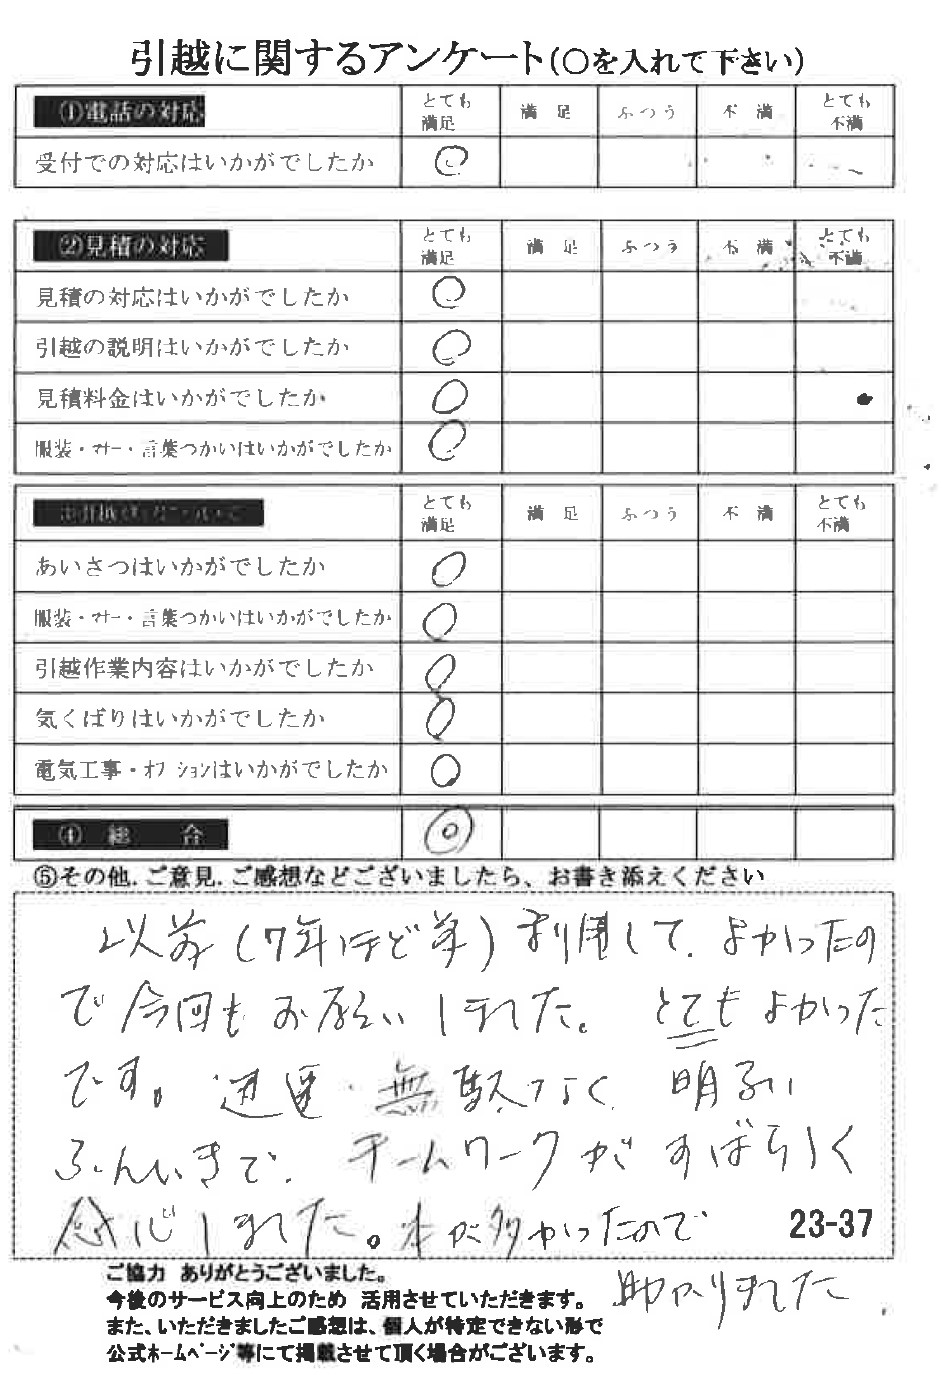 引越に関するアンケート(○を入れて下さい)
①電話の対応 とても満足 満足 ふつう 不満 とても不満
受付での対応はいかがでしたか
②見積の対応 とても満足 満足 ふつう 不満 とても不満
見積の対応はいかがでしたか
引越の説明はいかがでしたか
見積料金はいかがでしたか
服装・マナー・言葉つかいはいかがでしたか
とても満足 満足 ふつう 不満 とても不満
あいさつはいかがでしたか
服装・マナー・言葉つかいはいかがでしたか
引越作業内容はいかがでしたか
気くばりはいかがでしたか
電気工事・オプションはいかがでしたか
④ 総 合
⑤その他.ご意見.ご感想などございましたら、お書き添えください
以前(7年ほど前)利用して、よかったの
で今回もお願いしました。とてもよかった
です。迅速、無駄なく、明るい
ふんいきで、チームワークがすばらしく
感心しました。本が多かったので
23-37
助かりました
ご協力 ありがとうございました。
今後のサービス向上のため 活用させていただきます。
また、いただきましたご感想は、個人が特定できない形で
公式ホームページ等にて掲載させて頂く場合がございます。